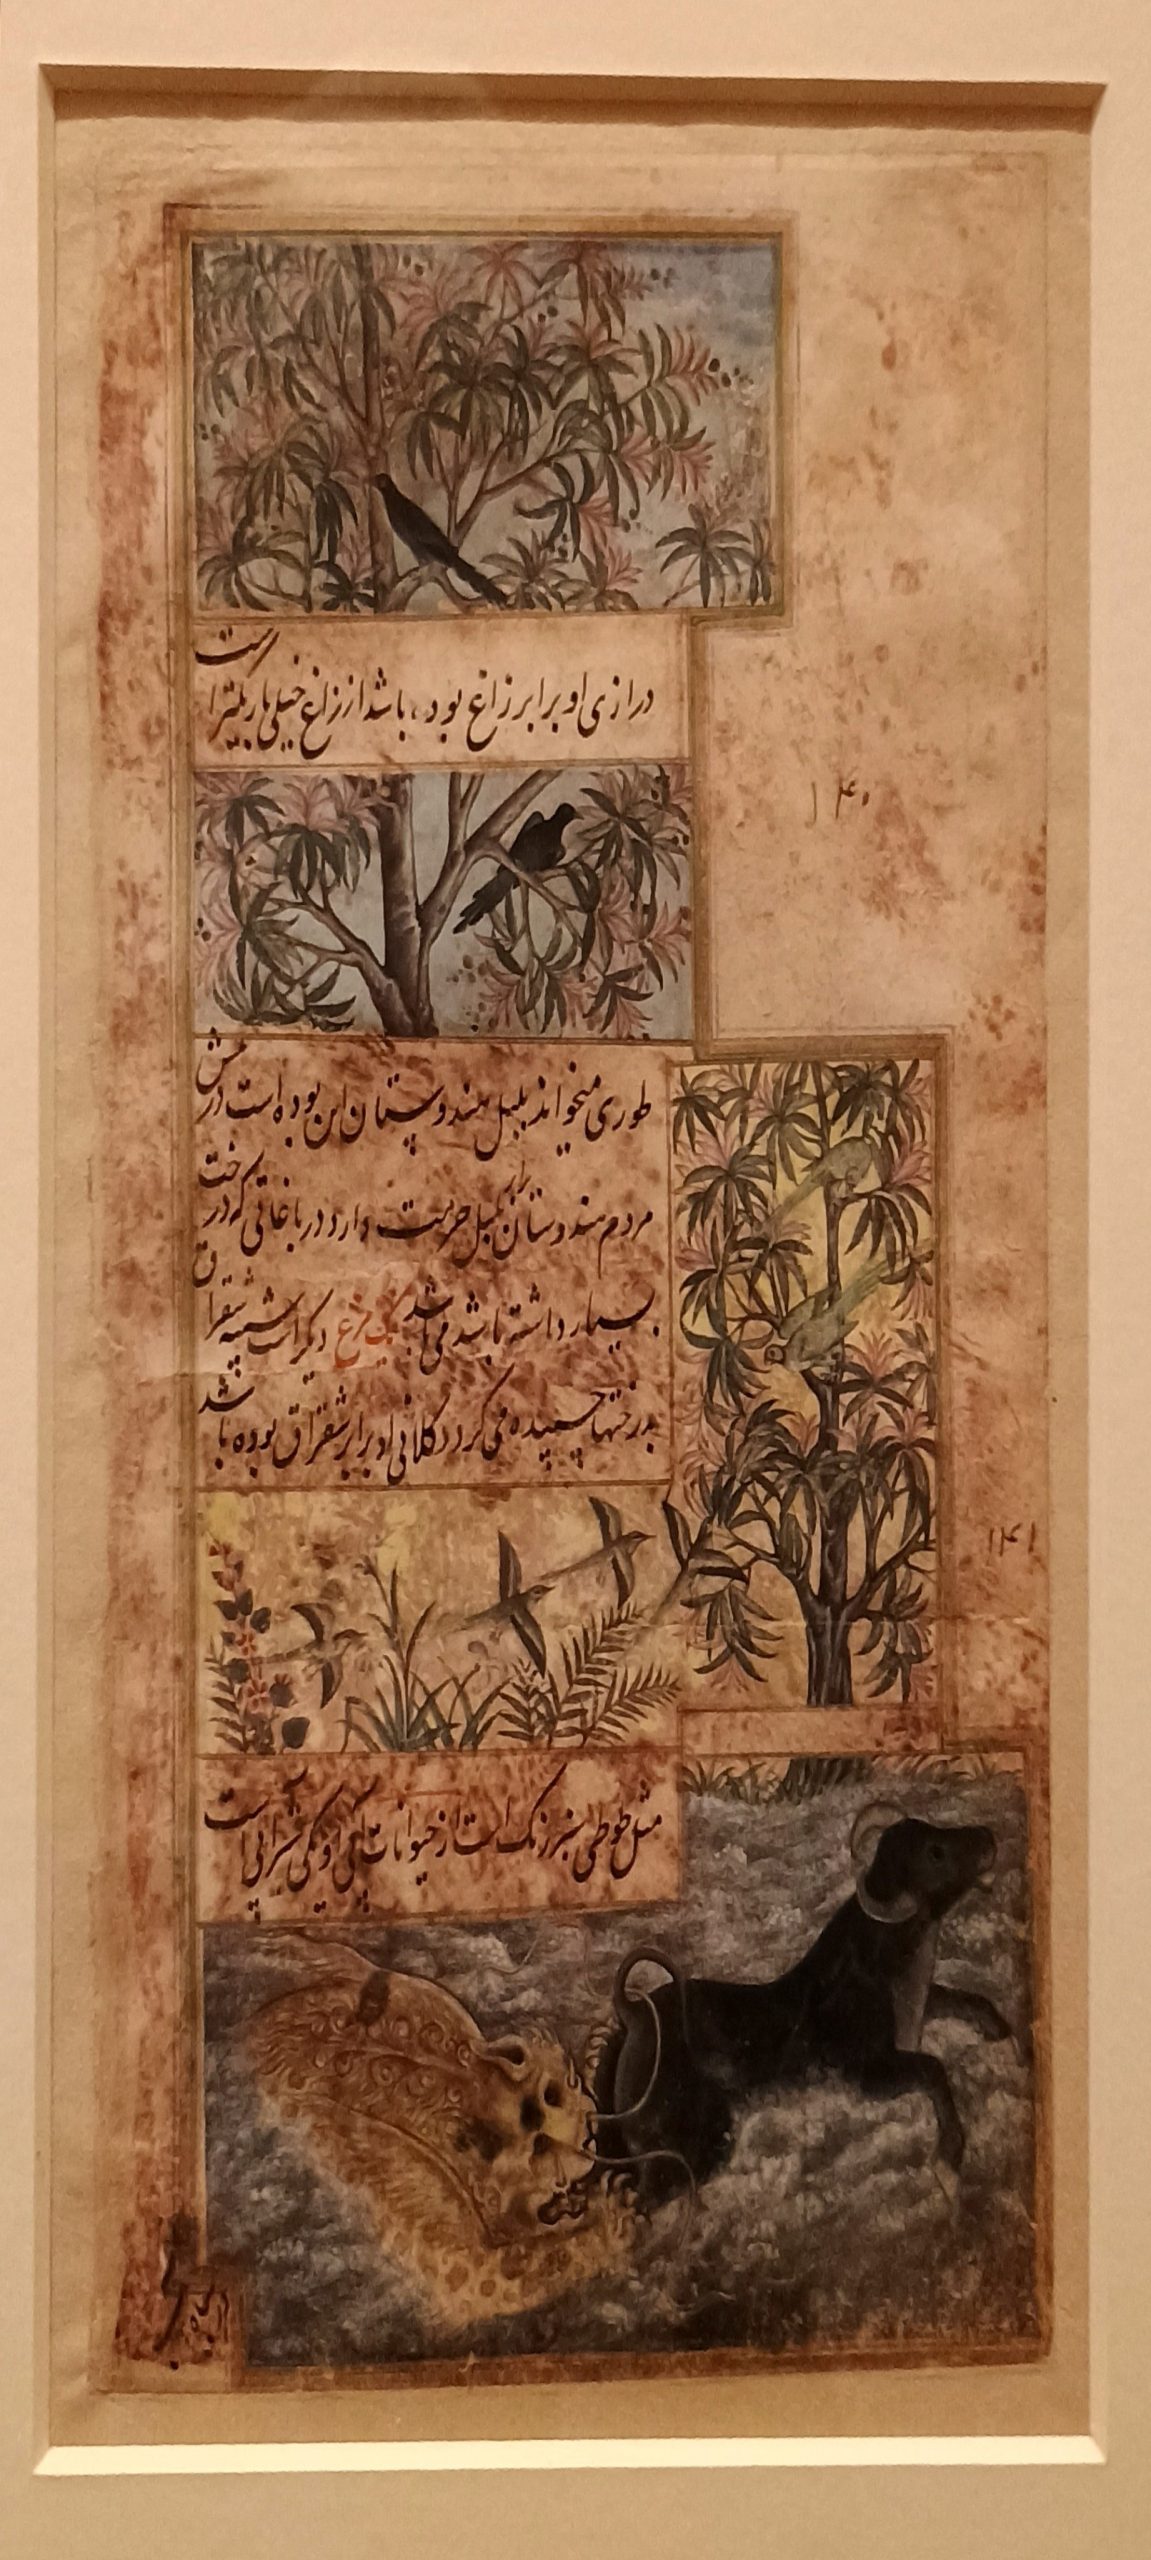 درازی او برابر زاغ بوده باشد از زاغ خیلی باریکتر است
۱۴۰
طوری میخواند بلبل هندوستان این بوده است در پیش
مردم هندوستان این بلبل را حرمت دارد در باغاتی که درخت
بسیار داشته باشد می باشد یک مرغ دیگر است شبیه شقراق
بدرختها چسپیده می گردد کلانی او برابر شقراق بوده باشد
۱۴۱
مثل طوطی سبز رنگ است از حیوانات آبی او یکی شیر آبی است